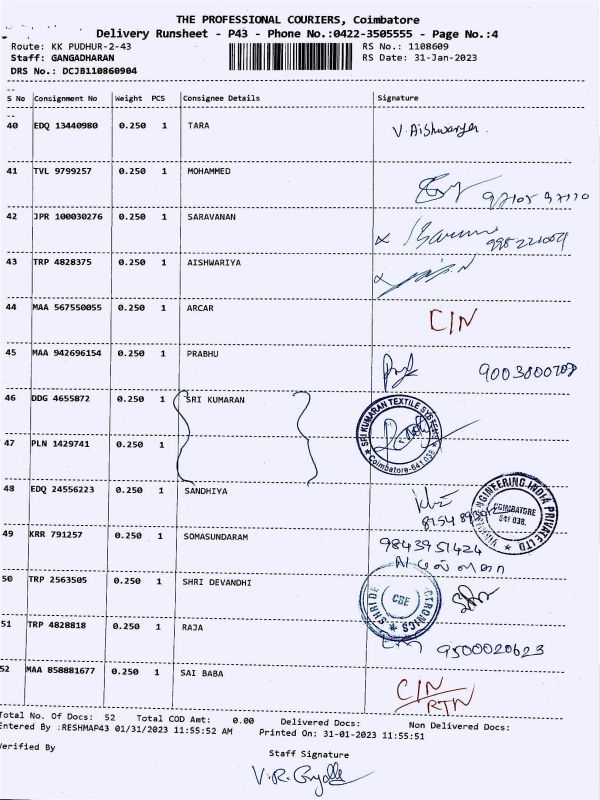 THE PROFESSIONAL COURIERS, Coimbatore
Delivery Runsheet - P43 - Phone No.:0422-3505555 - Page No.:4
Route: KK PUDHUR-2-43 RS No.: 1108609
Staff: GANGADHARAN RS Date: 31-Jan-2023
DRS No.: DCJB110860904
S No Consignment No Weight PCS Consignee Details Signature
40 EDQ 13440980 0.250 1 TARA V. Aishwarya.
41 TVL 9799257 0.250 1 MOHAMMED
42 JPR 100030276 0.250 1 SARAVANAN
43 TRP 4828375 0.250 1 AISHWARIYA
44 MAA 567550055 0.250 1 ARCAR C/N
45 MAA 942696154 0.250 1 PRABHU
46 DDG 4655872 0.250 1 SRI KUMARAN
SRI KUMARAN TEXTILE SYSTEMS
Coimbatore-641 038.
47 PLN 1429741
48 EDQ 24556223 0.250 1 SANDHIYA
ENGINEERING INDIA PRIVATE LTD
COIMBATORE
641 038.
49 KRR 791257 0.250 1 SOMASUNDARAM 9843951424
50 TRP 2563505 0.250 1 SHRI DEVANDHI
CBE
51 TRP 4828818 0.250 1 RAJA 9500020623
52 MAA 858881677 0.250 1 SAI BABA C/N
RTN
Total No. Of Docs: 52 Total COD Amt: 0.00 Delivered Docs: Non Delivered Docs:
Entered By :RESHMAP43 01/31/2023 11:55:52 AM Printed On: 31-01-2023 11:55:51
Verified By
Staff Signature